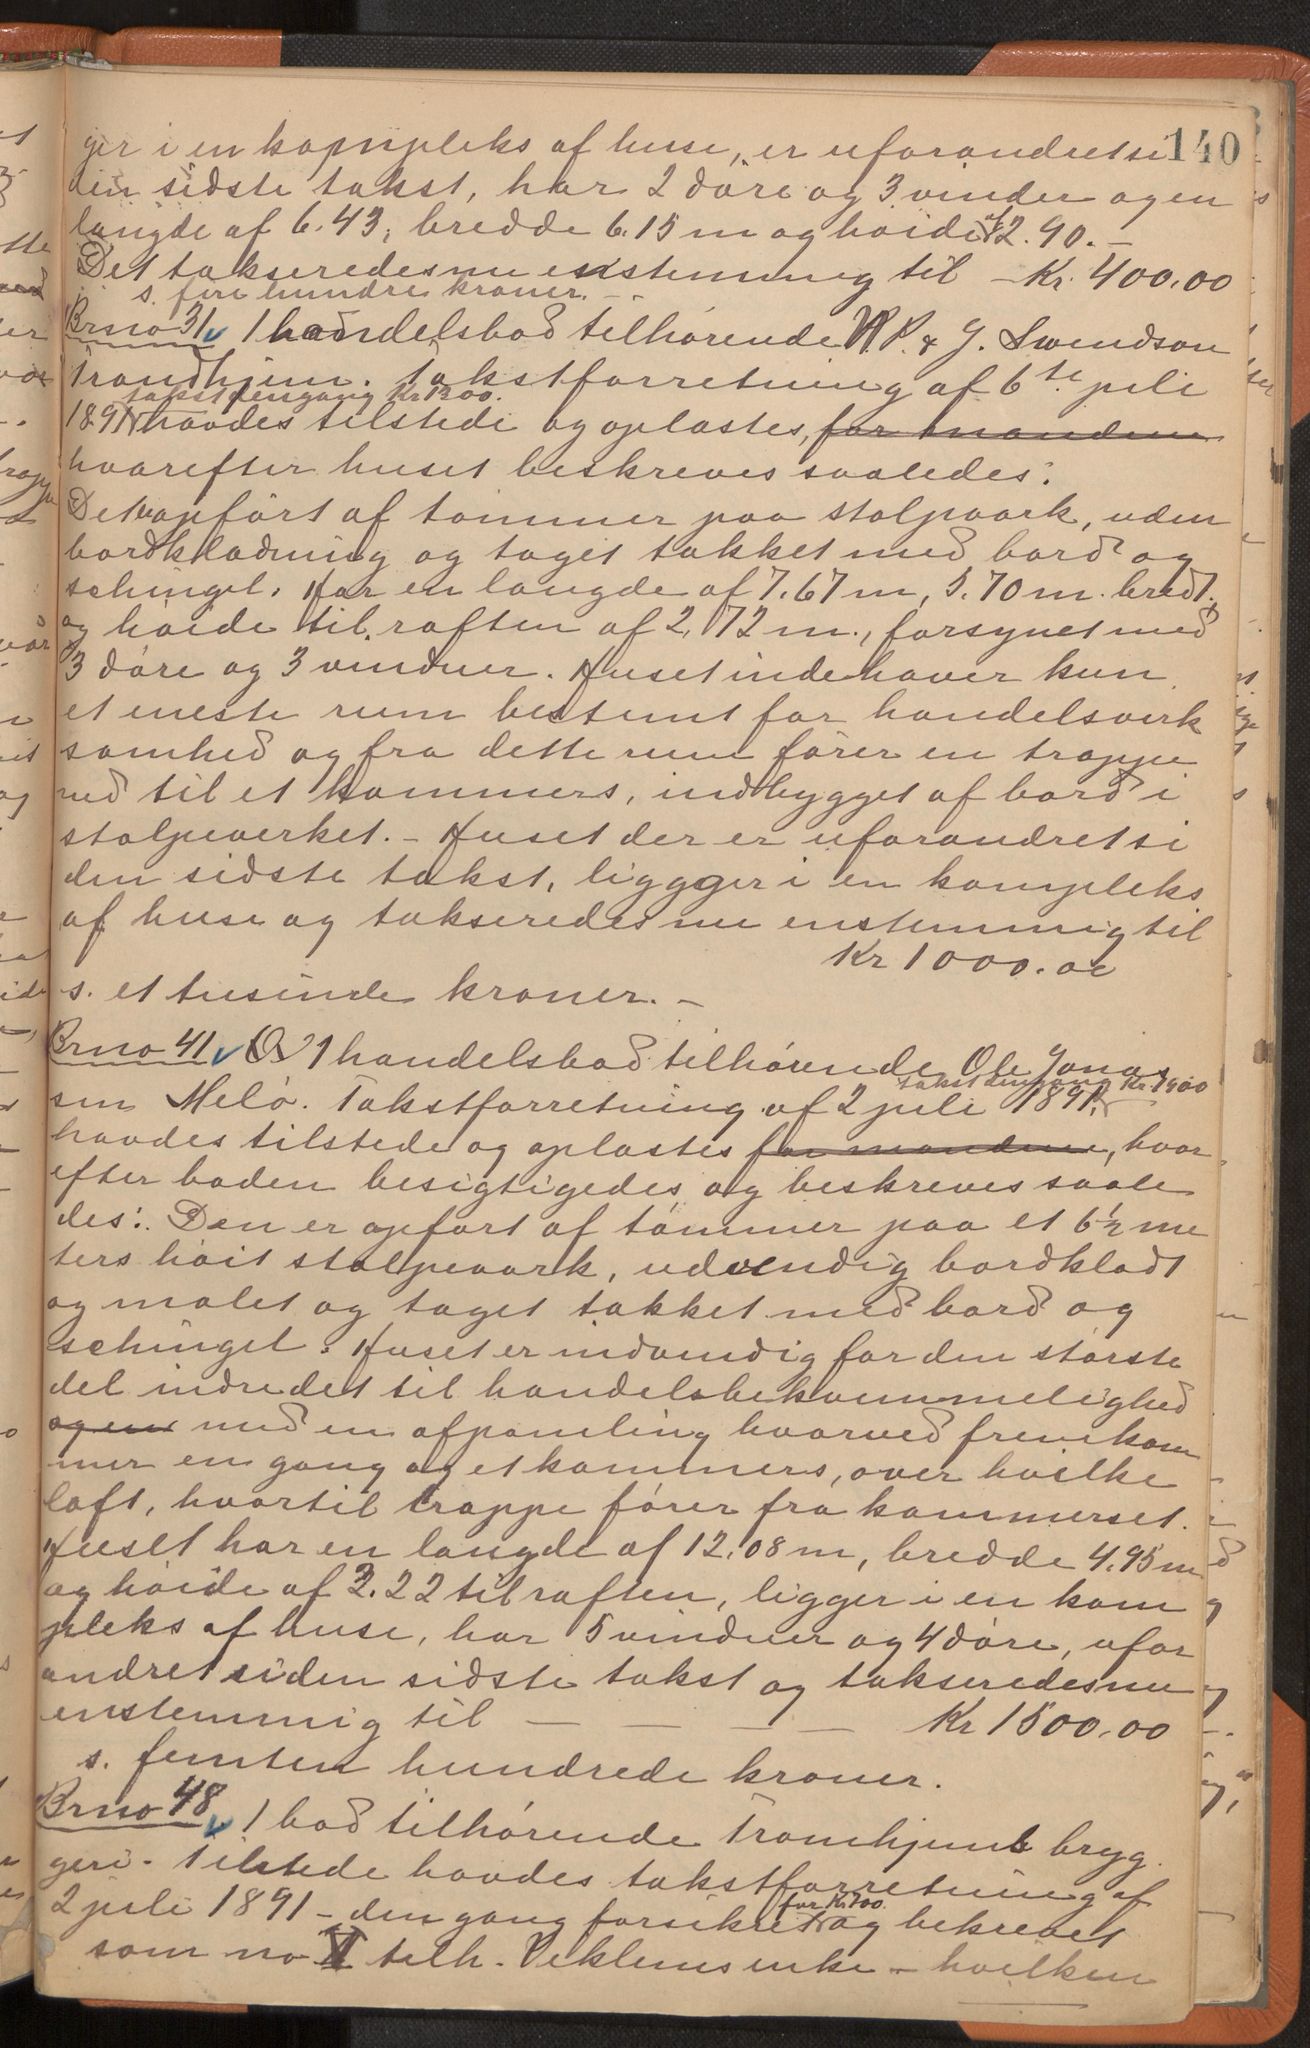 140
ger i en kompleks af huse, er uforandret si
den sidste takst, har 2 döre og 3 vinder og en
længde af 6.43, bredde 6.15 m og høide af 2.90. —
Det takseredes nu enstemmig til — Kr. 400.00
s. fire hundre kroner. —
Brno 31 1 handelsbod tilhørende P. & J. Svendson
Trondhjem. Takstforretning af 6te juli
takst dengang Kr 1200.
1891 havdes tilstede og oplæstes, for mændene
hvorefter huset beskreves saaledes:
Det er opført af tømmer paa stolpværk, uden
bordklædning og taget tækket med bord og
schingel. Har en længde af 7.67 m, 5.70 m. bredt
og høide til raften af 2.72 m., forsynet med
3 døre og 3 vinduer. Huset indehaver kun
et eneste rum bestemt for handelsverk
somhed og fra dette rum fører en trappe
ned til et kammers, indbygget af bord i
stolpeverket. – Huset der er uforandret si
den sidste takst, liggger i en kompleks
af huse og takseredes nu enstemmig til
Kr 1000.00
s. et tusinde kroner. —
Brno 41 1 handelsbod tilhørende Ole Jonas
takst dengang Kr 1900
sen Melø. Takstforretning af 2 juli 1891.
havdes tilstede og oplæstes for mændene, hvor
efter boden besigtigedes og beskreves saale
des: Den er opført af tømmer paa et 6½ me
ters høit stolpeværk, udvendig bordklædt
og malet og taget tækket med bord og
schingel. Huset er indvendig for den største
del indredet til handelsbekvemmelighed
og en med en afpanling hvorved fremkom
mer en gang og et kammers, over hvilke
loft, hvortil trappe fører fra kammerset.
Huset har en længde af 12.08 m, bredde 4.95 m
og høide af 3.22 til raften, ligger i en kom
pleks af huse, har 5 vinduer og 4 døre, ufor
andret siden sidste takst og takseredes nu
enstemmig til — — — — Kr 1500.00
s. femten hundrede kroner.
Brno 48 1 bod tilhørende Tromhjems bryg
geri. Tilstede havdes takstforretning af
for Kr 700.
2 juli 1891 – den gang forsikret og bekrevet
som no VI tilh. Veklems enke – hvilken